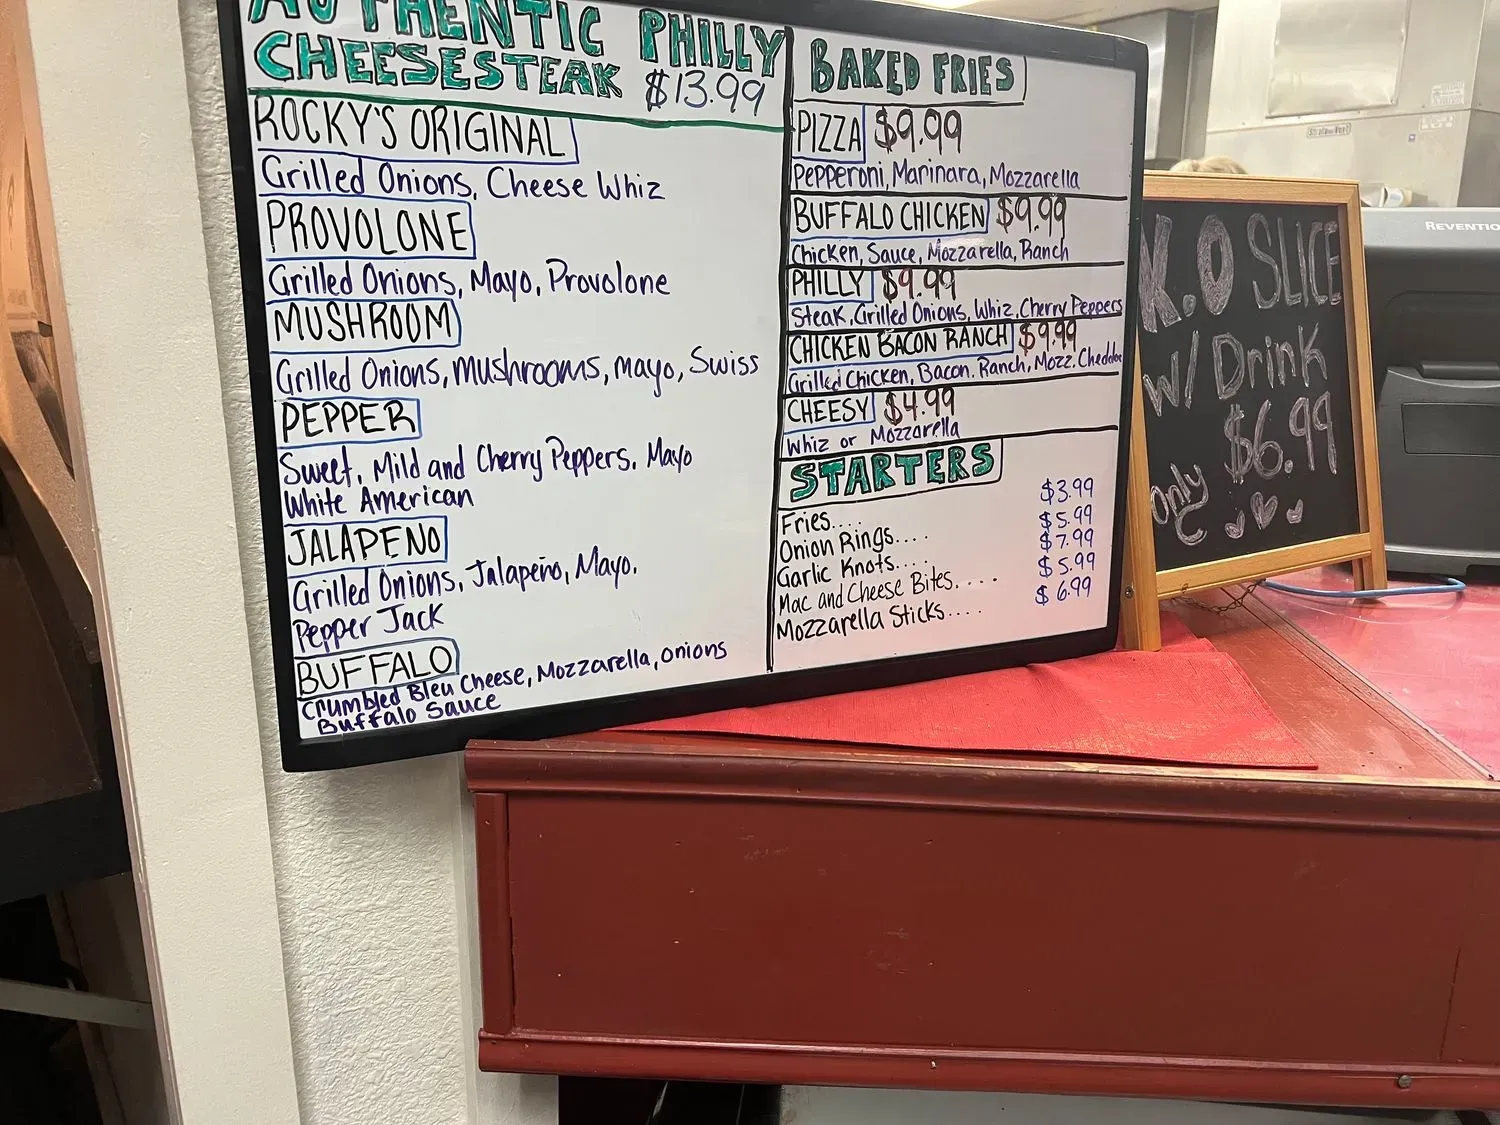 AUTHENTIC PHILLY
CHEESESTEAK $13.99
ROCKY'S ORIGINAL
Grilled Onions, Cheese Whiz
PROVOLONE
Grilled Onions, Mayo, Provolone
MUSHROOM
Grilled Onions, Mushrooms, Mayo, Swiss
PEPPER
Sweet, Mild and Cherry Peppers, Mayo
White American
JALAPENO
Grilled Onions, Jalapeño, Mayo,
Pepper Jack
BUFFALO
Crumbled Bleu Cheese, Mozzarella, Onions
Buffalo Sauce
BAKED FRIES
PIZZA $9.99
Pepperoni, Marinara, Mozzarella
BUFFALO CHICKEN $9.99
Chicken, Sauce, Mozzarella, Ranch
PHILLY $9.99
Steak, Grilled Onions, Whiz, Cherry Peppers
CHICKEN BACON RANCH $9.99
Grilled Chicken, Bacon, Ranch, Mozz, Cheddar
CHEESY $4.99
Whiz or Mozzarella
STARTERS
Fries.... $3.99
Onion Rings.... $5.99
Garlic Knots.... $7.99
Mac and Cheese Bites.... $5.99
Mozzarella Sticks.... $6.99
K.O SLICE
w/ Drink
$6.99
only
REVENTIO